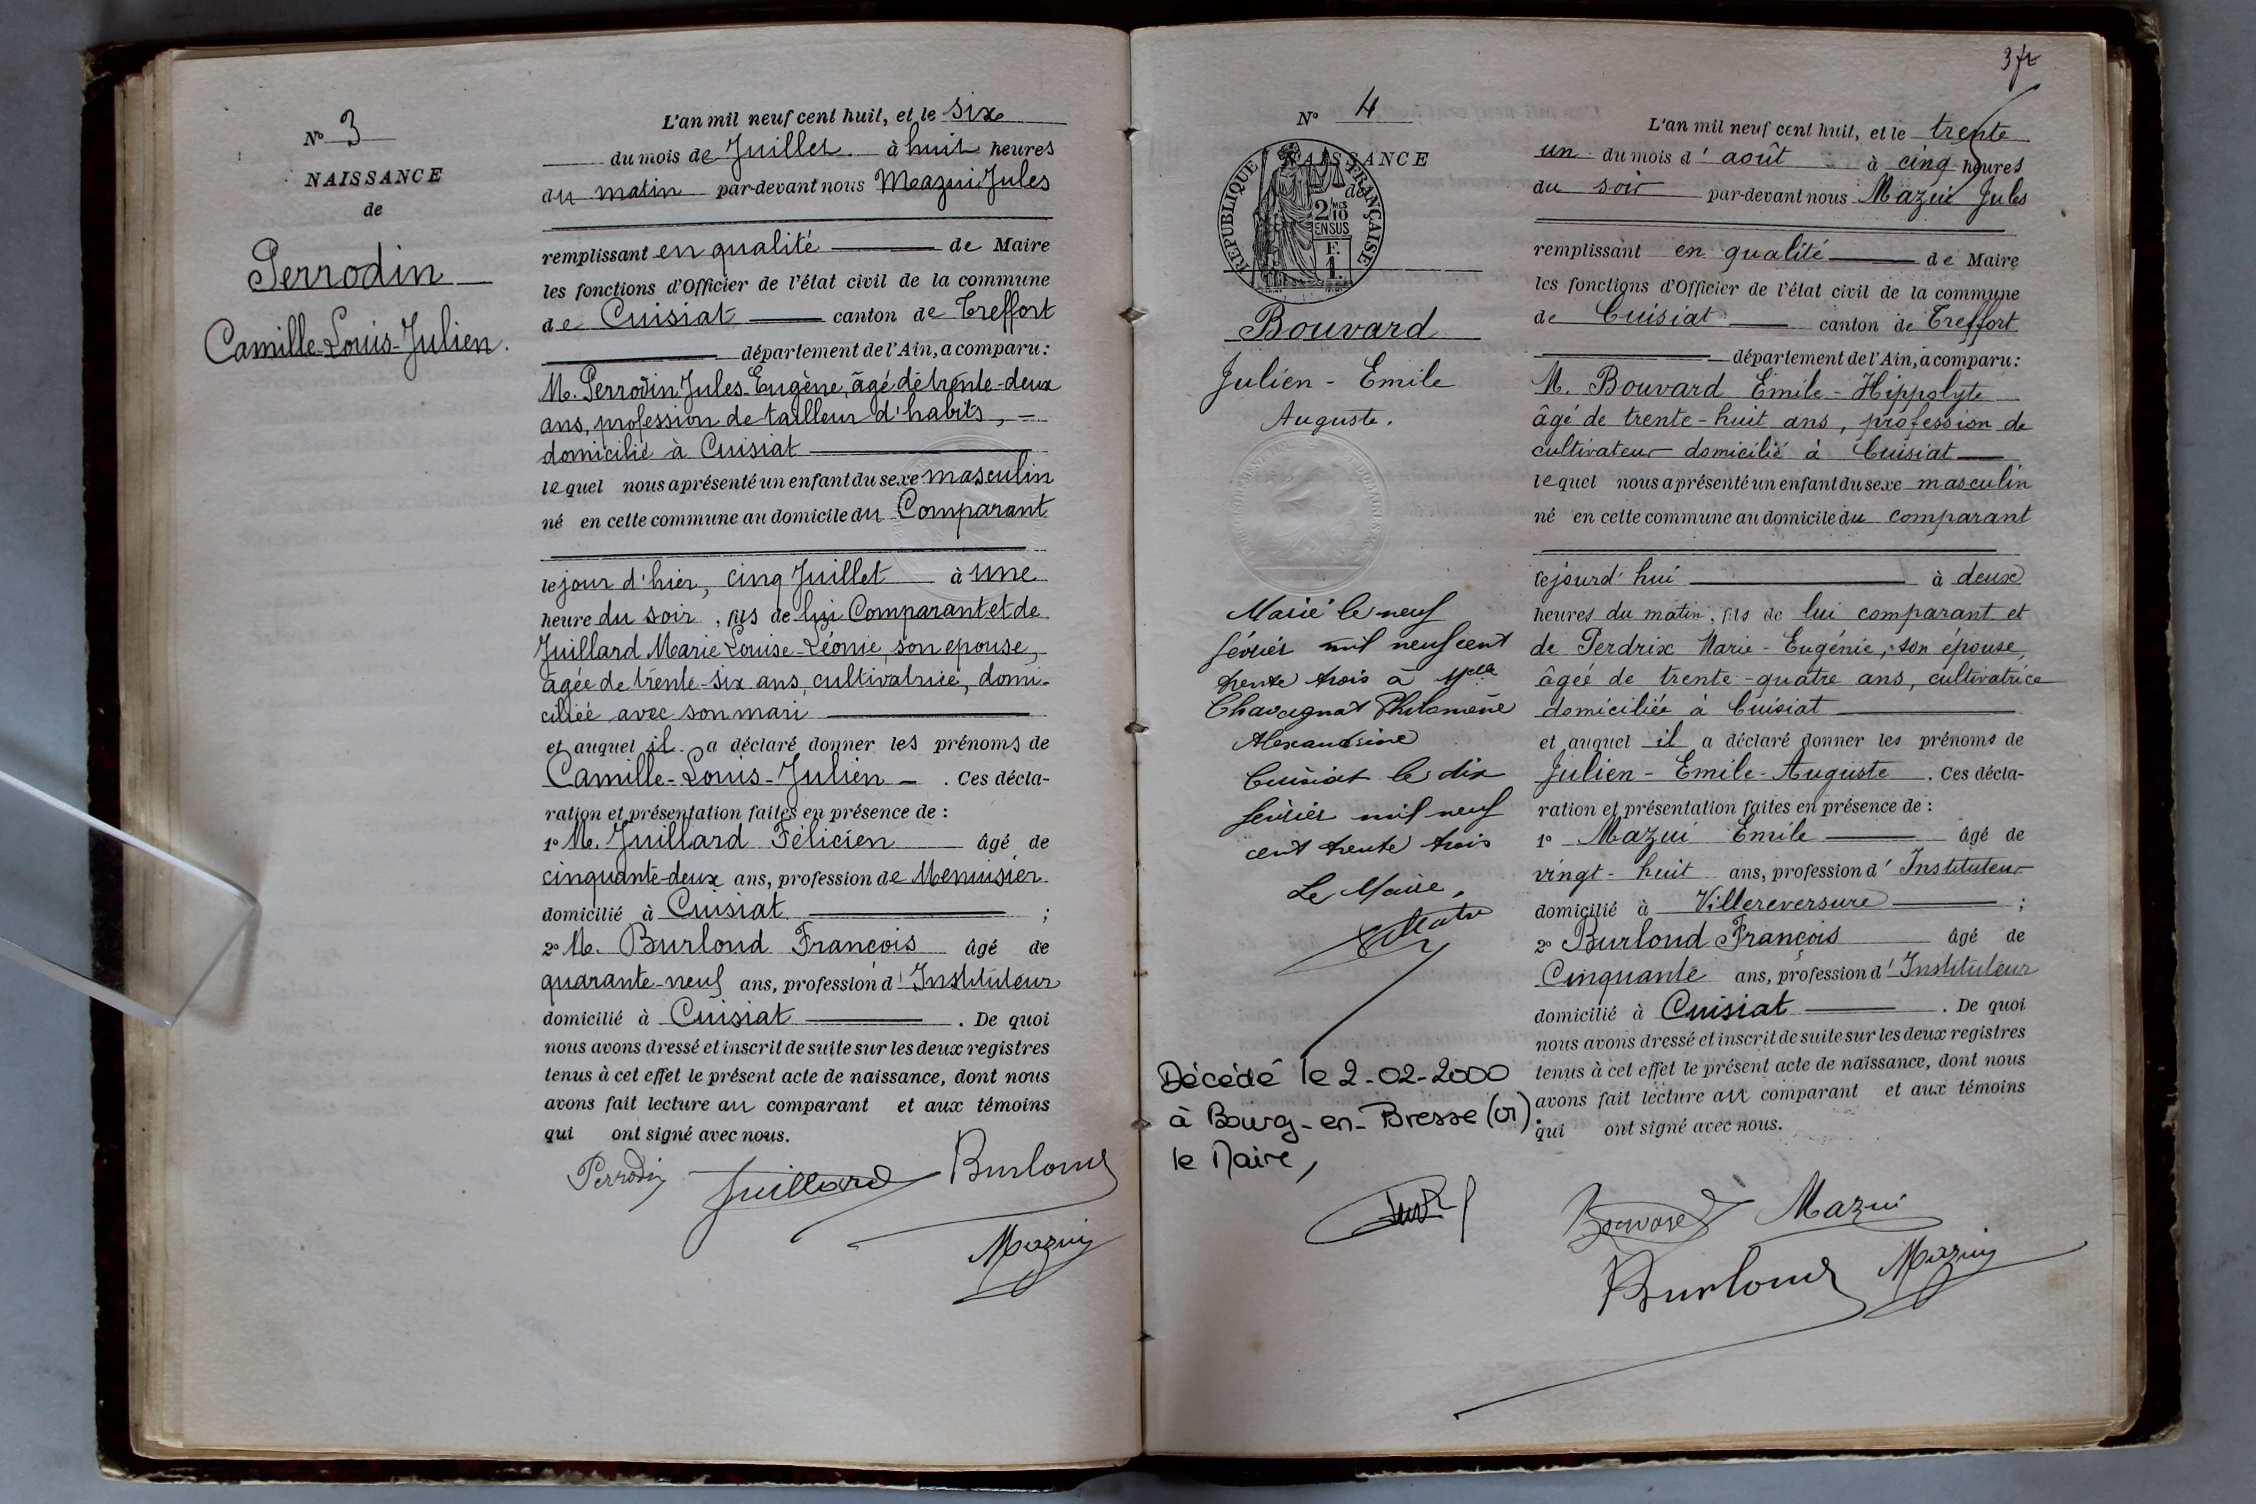 N° 3
NAISSANCE
de
Perrodin
Camille-Louis-Julien.
L'an mil neuf cent huit, et le six
du mois de Juillet à huit heures
du matin par-devant nous Mazui Jules
remplissant en qualité de Maire
les fonctions d'Officier de l'état civil de la commune
de Cuisiat canton de Treffort
département de l'Ain, a comparu:
M. Perrodin Jules-Eugène, âgé de trente-deux
ans, profession de tailleur d'habits,
domicilié à Cuisiat
lequel nous a présenté un enfant du sexe masculin
né en cette commune au domicile du Comparant
le jour d'hier, cinq Juillet à une
heure du soir, fils de lui Comparant et de
Juillard Marie Louise-Léonie, son epouse,
âgée de trente-six ans, cultivatrice, domi-
ciliée avec son mari
et auquel il a déclaré donner les prénoms de
Camille-Louis-Julien. Ces décla-
ration et présentation faites en présence de :
1° M. Juillard Félicien âgé de
cinquante-deux ans, profession de Menuisier
domicilié à Cuisiat ;
2° M. Burloud François âgé de
quarante-neuf ans, profession d'Instituteur
domicilié à Cuisiat. De quoi
nous avons dressé et inscrit de suite sur les deux registres
tenus à cet effet le présent acte de naissance, dont nous
avons fait lecture au comparant et aux témoins
qui ont signé avec nous.
Perrodin Juillard Burloud
Mazui
N° 4
NAISSANCE
de
REPUBLIQUE FRANÇAISE
2/10
EN SUS
F.
1.
Bouvard
Julien - Emile
Auguste.
Marié le neuf
février mil neuf cent
trente trois à Melle
Chavagnat Philomène
Alexandrine
Cuisiat le dix
février mil neuf
cent trente trois
Le Maire,
Décédé le 2-02-2000
à Bourg-en-Bresse (01).
le Maire,
L'an mil neuf cent huit, et le trente
un du mois d'août à cinq heures
du soir par-devant nous Mazui Jules
remplissant en qualité de Maire
les fonctions d'Officier de l'état civil de la commune
de Cuisiat canton de Treffort
département de l'Ain, a comparu:
M. Bouvard Emile-Hippolyte
âgé de trente-huit ans, profession de
cultivateur domicilié à Cuisiat
lequel nous a présenté un enfant du sexe masculin
né en cette commune au domicile du comparant
cejourd'hui à deux
heures du matin, fils de lui comparant et
de Perdrix Marie-Eugénie, son épouse,
âgée de trente-quatre ans, cultivatrice
domiciliée à Cuisiat
et auquel il a déclaré donner les prénoms de
Julien-Emile-Auguste. Ces décla-
ration et présentation faites en présence de :
1° Mazui Emile âgé de
vingt-huit ans, profession d'Instituteur
domicilié à Villereversure ;
2° Burloud François âgé de
Cinquante ans, profession d'Instituteur
domicilié à Cuisiat. De quoi
nous avons dressé et inscrit de suite sur les deux registres
tenus à cet effet le présent acte de naissance, dont nous
avons fait lecture au comparant et aux témoins
qui ont signé avec nous.
Bouvard Mazui
Burloud Mazui